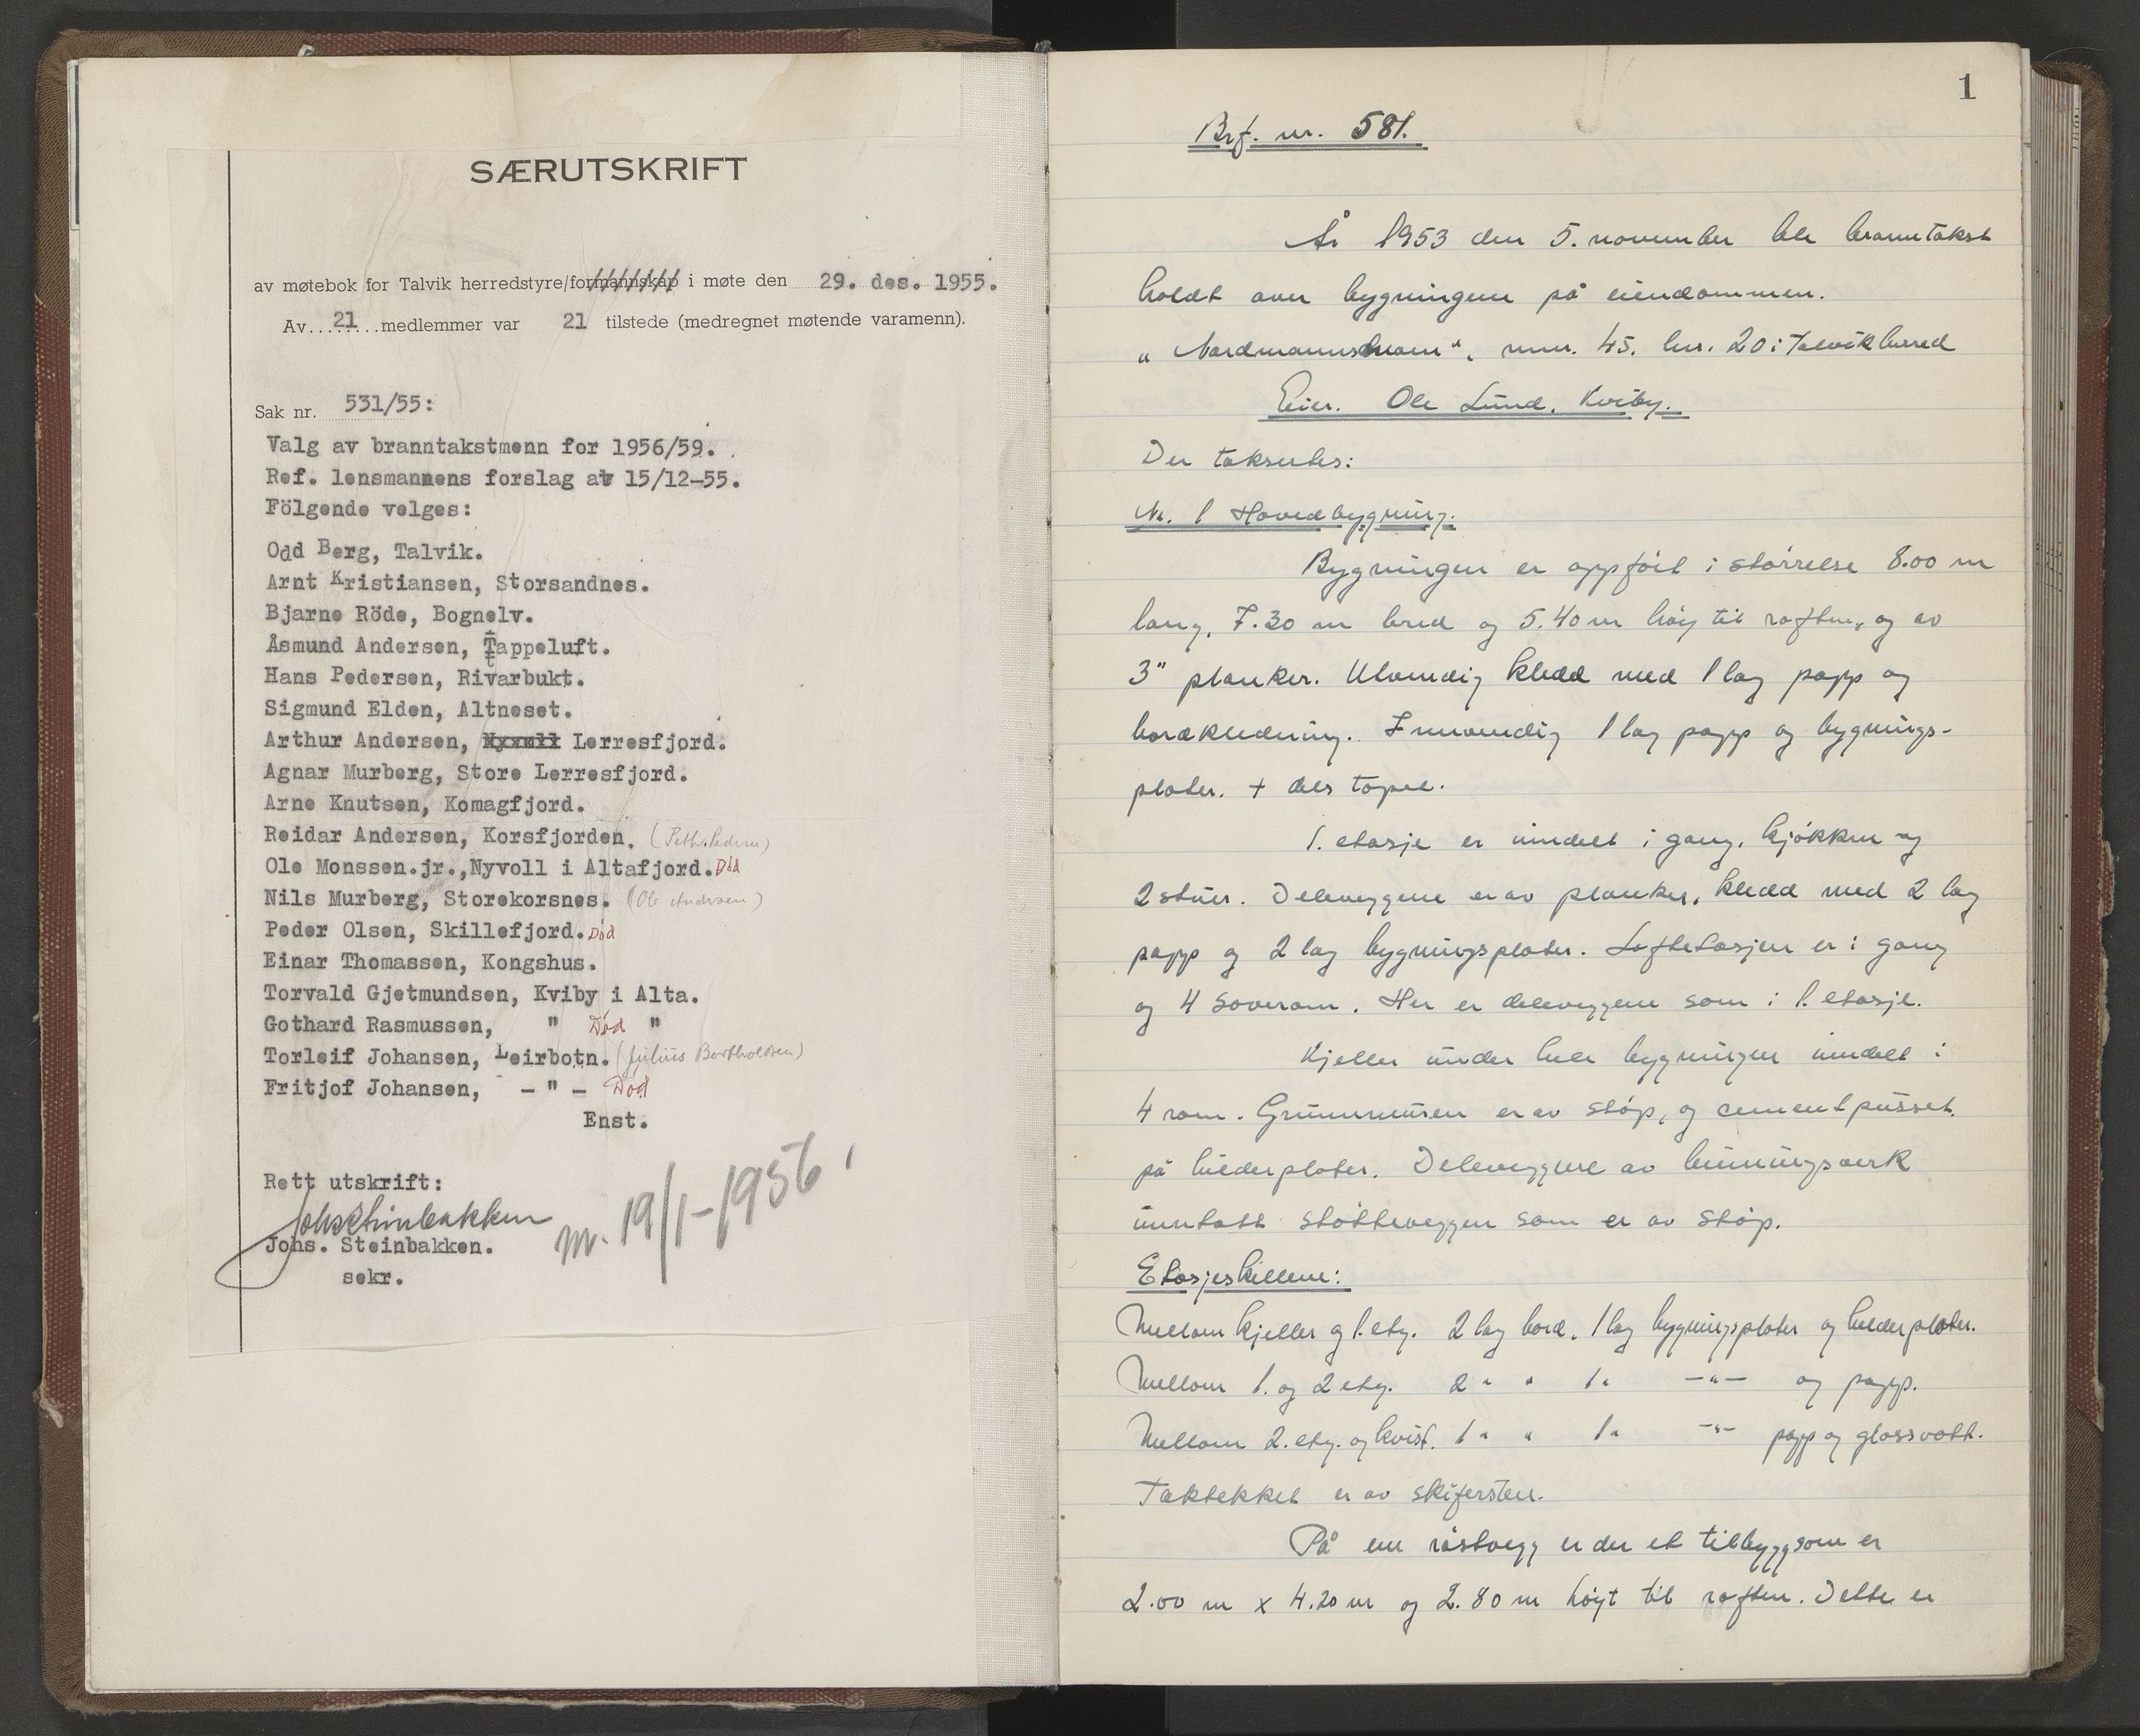 SÆRUTSKRIFT
av møtebok for Talvik herredstyre/formannskap i møte den 29. des. 1955.
Av....21....medlemmer var 21 tilstede (medregnet møtende varamenn).
Sak nr. 531/55:
Valg av branntakstmenn for 1956/59.
Ref. lensmannens forslag av 15/12-55.
Fölgende velges:
Odd Berg, Talvik.
Arnt Kristiansen, Storsandnes.
Bjarne Röde, Bognelv.
Åsmund Andersen, Tappeluft.
Hans Pedersen, Rivarbukt.
Sigmund Elden, Altneset.
Arthur Andersen, Nyvoll Lerresfjord.
Agnar Murberg, Store Lerresfjord.
Arne Knutsen, Komagfjord.
Reidar Andersen, Korsfjorden. (Peth. Pedersen)
Ole Monssen.jr.,Nyvoll i Altafjord. Død
Nils Murberg, Storekorsnes. (Ole Andersen)
Peder Olsen, Skillefjord. Død
Einar Thomassen, Kongshus.
Torvald Gjetmundsen, Kviby i Alta.
Gothard Rasmussen, " Død "
Torleif Johansen, Leirbotn. (Julius Bertholdsen)
Fritjof Johansen, - " - Død
Enst.
Rett utskrift:
Johs Steinbakken
Johs. Steinbakken.
sekr.
m. 19/1-1956.
1
Brf. nr. 581.
År 1953 den 5. november ble branntakst
holdt over bygningene på eiendommen.
"Nordmannsheim", mnr. 45. bnr. 20 i Talvik herred
Eier. Ole Lund, Kviby.
Der takseres:
Nr. 1 Hovedbygning.
Bygningen er oppført i størrelse 8.00 m
lang, 7.30 m bred og 5.40 m høy til raften, og av
3" planker. Utvendig kledd med 1 lag papp og
bordkledning. Innvendig 1 lag papp og bygnings-
plater. + dels tapet.
1. etasje er inndelt i gang, kjøkken og
2 stuer. Deleveggene er av planker, kledd med 2 lag
papp og 2 lag bygningsplater. Loftetasjen er i gang
og 4 soverom. Her er deleveggene som i 1. etasje.
Kjeller under hele bygningen inndelt i
4 rom. Grunnmuren er av støp, og cementpusset.
på hulderplater. Deleveggene av binningsverk
inntatt støtteveggen som er av støp.
Etasjeskillene:
Mellom kjeller og 1. etg. 2 lag bord, 1 lag bygningsplater og hulderplater.
Mellom 1. og 2 etg. 2 " " 1 " -"- og papp.
Mellom 2. etg. og kvist. 1 " " 1 " -"- papp og glassvatt.
Taktekket er av skifersten.
På ene røstvegg er der et tilbygg som er
2.00 m x 4.20 m og 2.80 m høyt til raften. Dette er